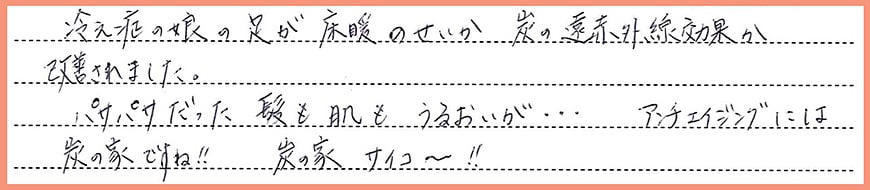 冷え症の娘の足が 床暖のせいか 炭の遠赤外線効果か
改善されました。
パサパサだった 髪も 肌も うるおいが・・・ アンチエイジングには
炭の家ですね!! 炭の家 サイコ〜!!